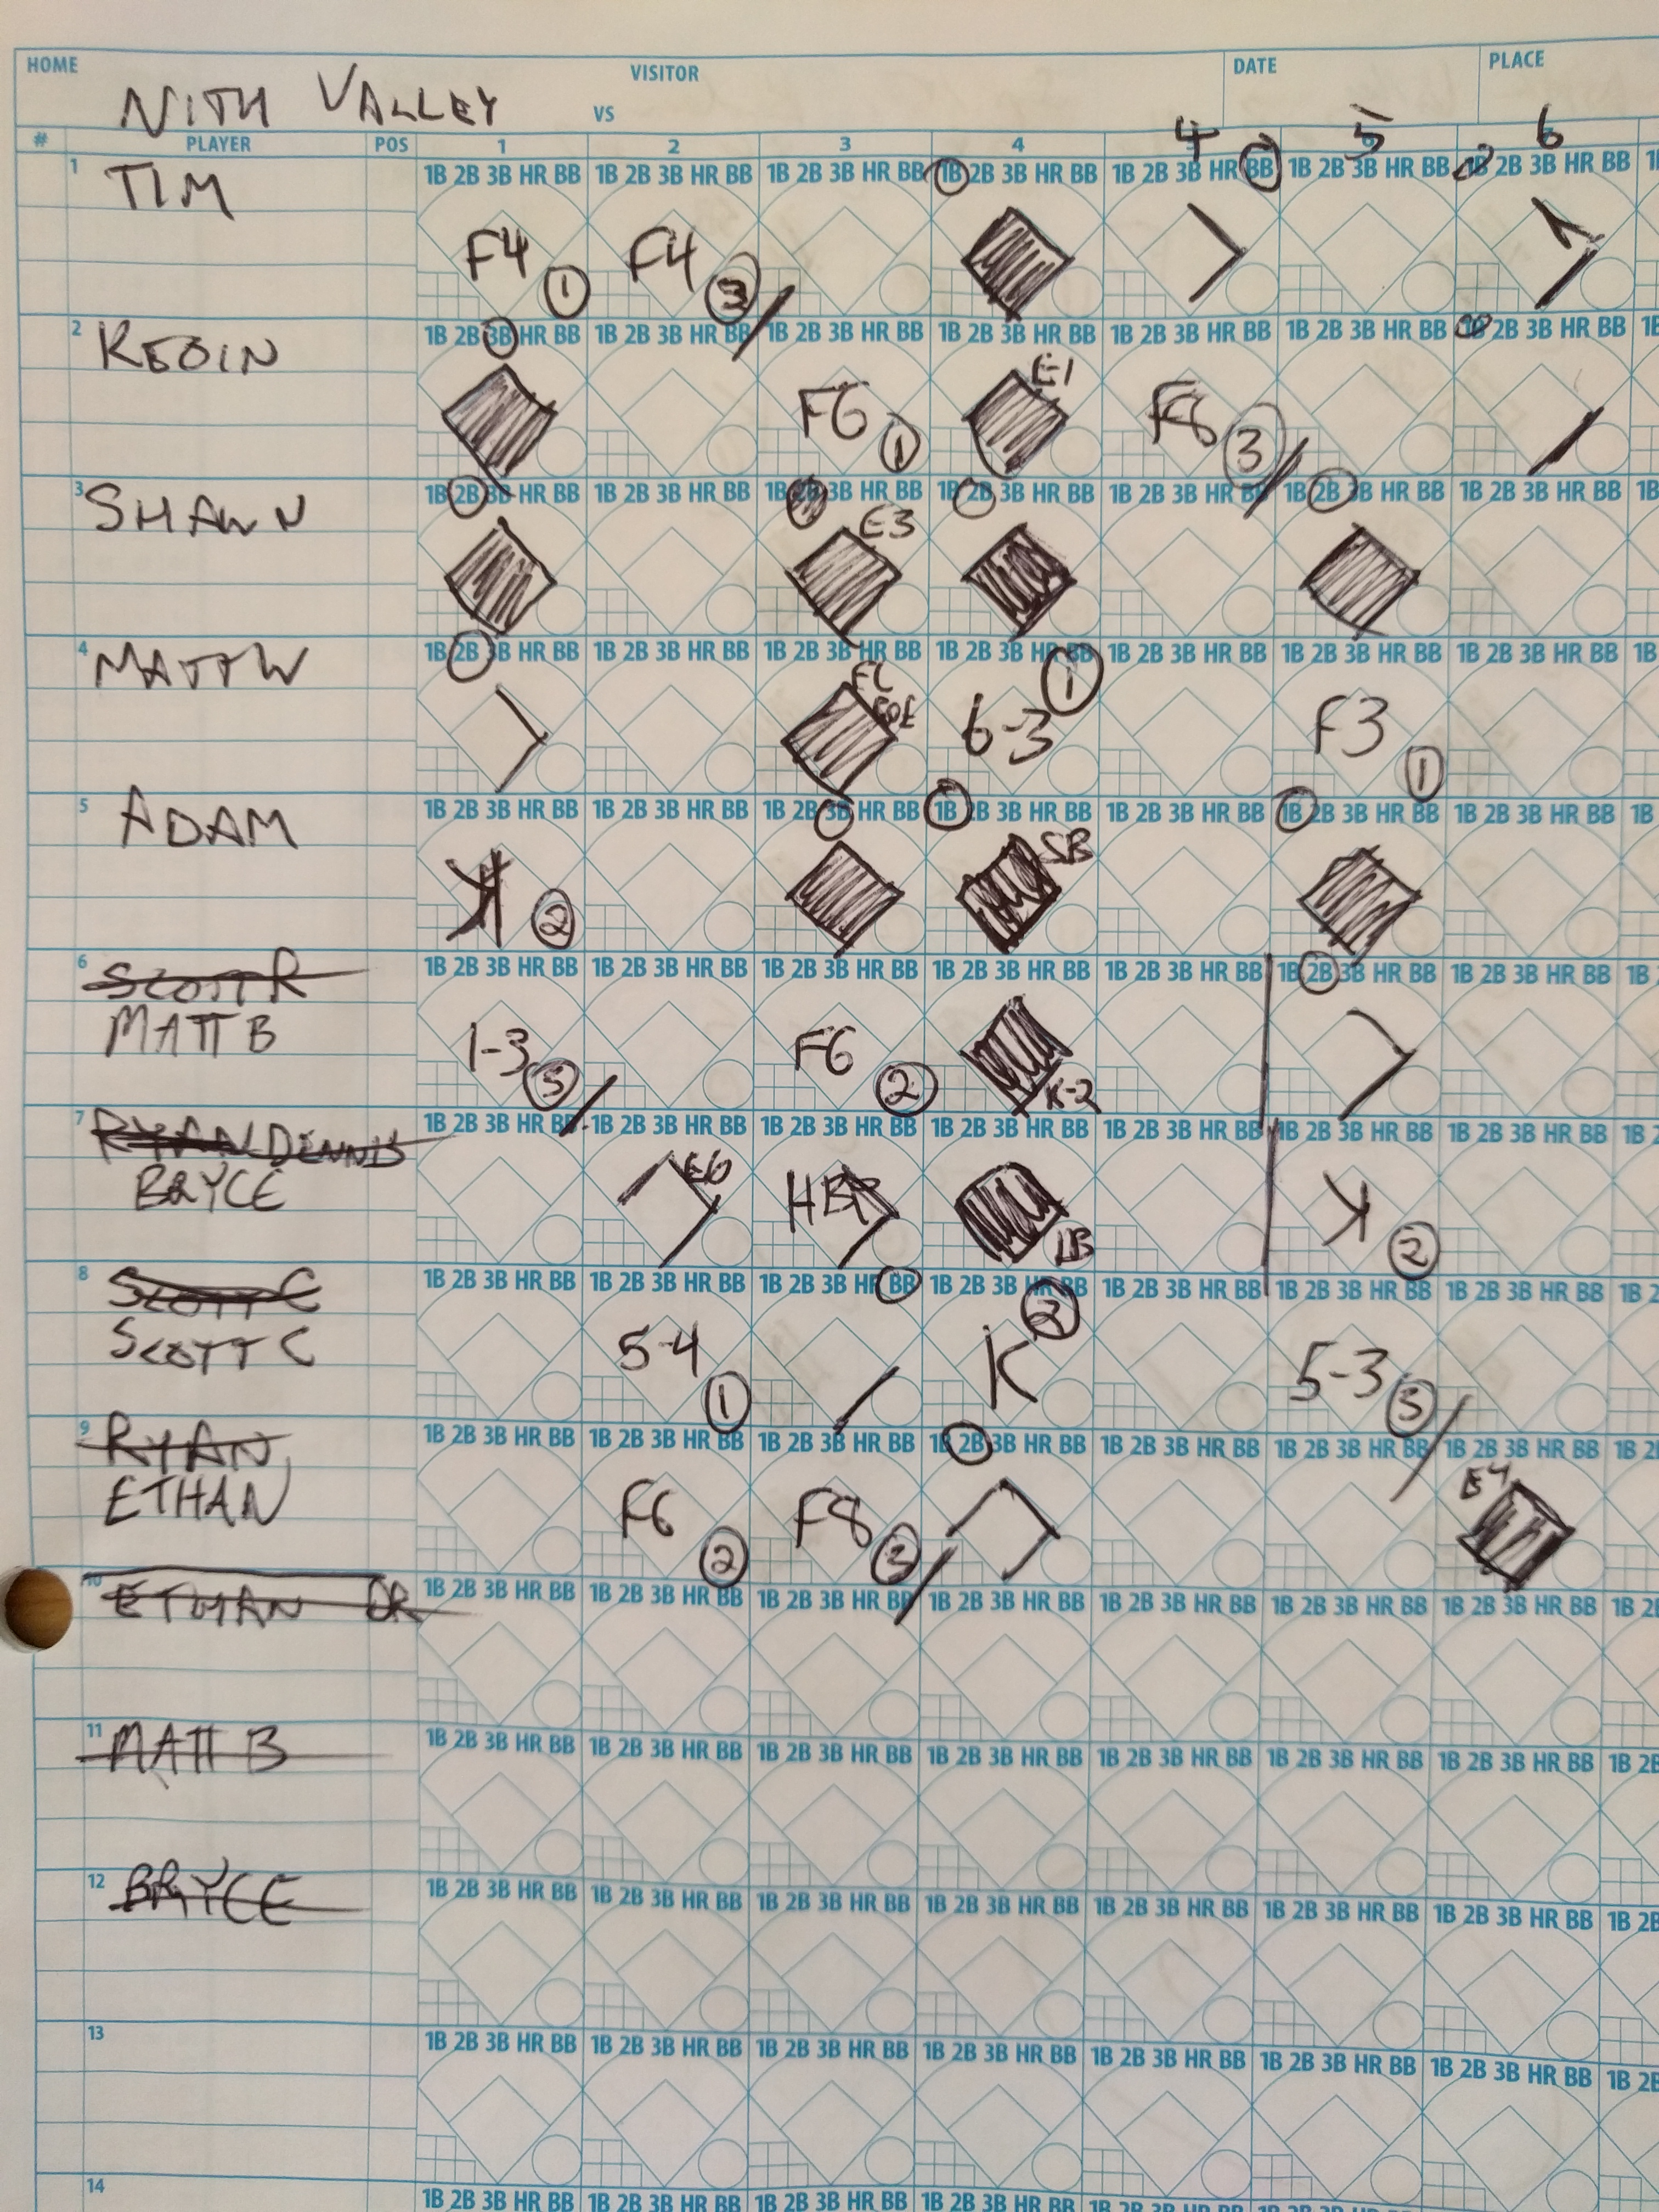 HOME VISITOR DATE PLACE
NITH VALLEY VS
4 5 6
# PLAYER POS 1 2 3 4
1 1B 2B 3B HR BB 1B 2B 3B HR BB 1B 2B 3B HR BB 1B 2B 3B HR BB 1B 2B 3B HR BB 1B 2B 3B HR BB 1B 2B 3B HR BB
TIM
F4 1 F4 3
2 1B 2B 3B HR BB 1B 2B 3B HR BB 1B 2B 3B HR BB 1B 2B 3B HR BB 1B 2B 3B HR BB 1B 2B 3B HR BB 1B 2B 3B HR BB 1B
F6 1 E-1 F8 3
3 1B 2B 3B HR BB 1B 2B 3B HR BB 1B 2B 3B HR BB 1B 2B 3B HR BB 1B 2B 3B HR BB 1B 2B 3B HR BB 1B 2B 3B HR BB 1B
SHAWN
E3
4 1B 2B 3B HR BB 1B 2B 3B HR BB 1B 2B 3B HR BB 1B 2B 3B HR BB 1B 2B 3B HR BB 1B 2B 3B HR BB 1B 2B 3B HR BB 1B
MATT W
FC 6-3 1 F3 1
5 1B 2B 3B HR BB 1B 2B 3B HR BB 1B 2B 3B HR BB 1B 2B 3B HR BB 1B 2B 3B HR BB 1B 2B 3B HR BB 1B 2B 3B HR BB 1B
ADAM
K 2 SB
6 1B 2B 3B HR BB 1B 2B 3B HR BB 1B 2B 3B HR BB 1B 2B 3B HR BB 1B 2B 3B HR BB 1B 2B 3B HR BB 1B 2B 3B HR BB 1B 2
SCOTT R
MATT B
1-3 3 F6 2 K-2
7 1B 2B 3B HR BB 1B 2B 3B HR BB 1B 2B 3B HR BB 1B 2B 3B HR BB 1B 2B 3B HR BB 1B 2B 3B HR BB 1B 2B 3B HR BB 1B 2
RYAN DENNIS
BRYCE
E6 HBP K 2
8 1B 2B 3B HR BB 1B 2B 3B HR BB 1B 2B 3B HR BB 1B 2B 3B HR BB 1B 2B 3B HR BB 1B 2B 3B HR BB 1B 2B 3B HR BB 1B 2
SCOTT C
SCOTT C
5-4 1 K 2 5-3 3
9 1B 2B 3B HR BB 1B 2B 3B HR BB 1B 2B 3B HR BB 1B 2B 3B HR BB 1B 2B 3B HR BB 1B 2B 3B HR BB 1B 2B 3B HR BB 1B 2
RYAN
ETHAN
F6 2 F8 3 E4
10 1B 2B 3B HR BB 1B 2B 3B HR BB 1B 2B 3B HR BB 1B 2B 3B HR BB 1B 2B 3B HR BB 1B 2B 3B HR BB 1B 2B 3B HR BB 1B 2
ETHAN
11 1B 2B 3B HR BB 1B 2B 3B HR BB 1B 2B 3B HR BB 1B 2B 3B HR BB 1B 2B 3B HR BB 1B 2B 3B HR BB 1B 2B 3B HR BB 1B 2B
MATT B
12 1B 2B 3B HR BB 1B 2B 3B HR BB 1B 2B 3B HR BB 1B 2B 3B HR BB 1B 2B 3B HR BB 1B 2B 3B HR BB 1B 2B 3B HR BB 1B 2B
BRYCE
13 1B 2B 3B HR BB 1B 2B 3B HR BB 1B 2B 3B HR BB 1B 2B 3B HR BB 1B 2B 3B HR BB 1B 2B 3B HR BB 1B 2B 3B HR BB 1B 2B
14 1B 2B 3B HR BB 1B 2B 3B HR BB 1B 2B 3B HR BB 1B 2B 3B HR BB